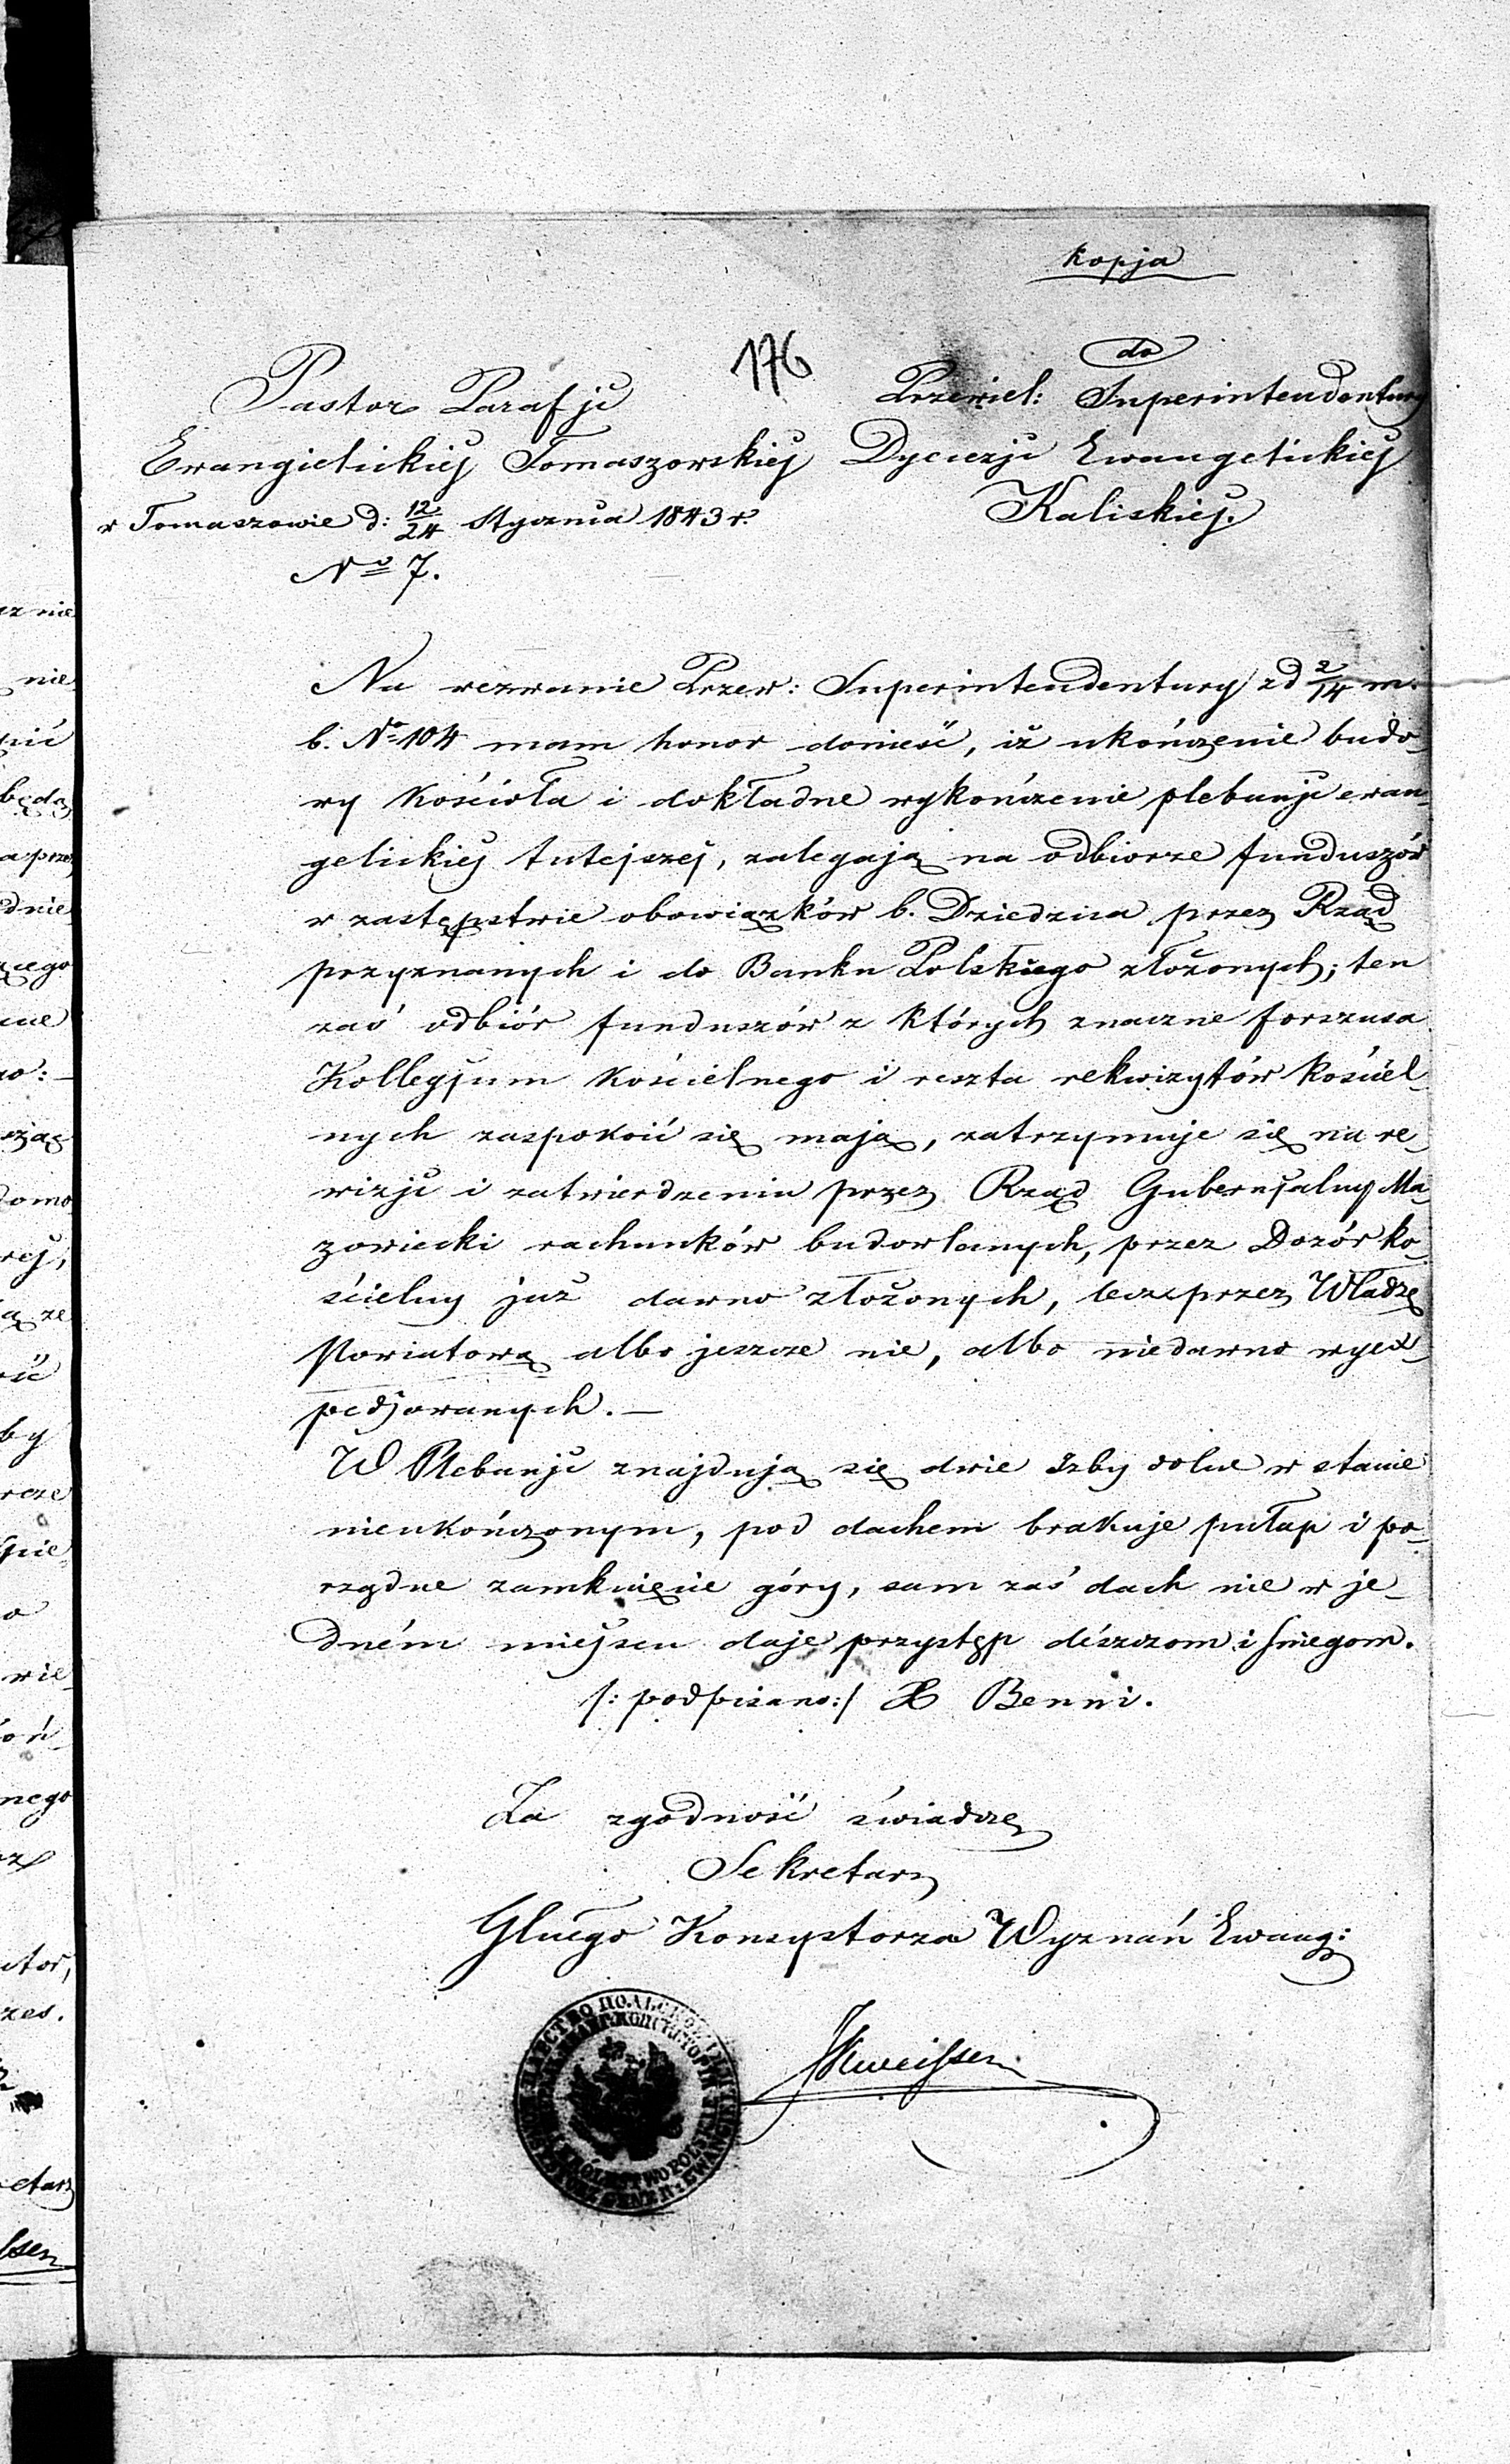 kopja
176
Pastor Parafji
Ewangielickiej Tomaszowskiej
w Tomaszowie d: 12/24 Stycznia 1843 r.
No 7.
do
Przewiel: Superintendentury
Dyecezji Ewangelickiej
Kaliskiej.
Na wezwanie Przew: Superintendentury z d 2/14 m.
b. No 104 mam honor donieść, iż ukończenie budo-
wy kościoła i dokładne wykończenie plebanji ewan-
gelickiej tutejszej, zalegają na odbiorze funduszów
w zastępstwie obowiązków b. Dziedzica przez Rząd
przyznanych i do Banku Polskiego złożonych; ten
zaś odbiór funduszów z których znaczne forszusa
Kollegjum kościelnego i reszta rekwizytów kościel-
nych zaspokoić się mają, zatrzymuje się na re-
wizji i zatwierdzeniu przez Rząd Gubernjalny Ma-
zowiecki rachunków budowlanych, przez Dozór ko-
ścielny już dawno złożonych, lecz przez Władzę
Powiatową albo jeszcze nie, albo niedawno wyex-
pedjowanych. —
W Plebanji znajdują się dwie Izby dolne w stanie
nieukończonym, pod dachem brakuje pułap i po-
rządne zamknięcie góry, sam zaś dach nie w je-
dném miejscu daje przystęp dészczom i śniegom.
/: podpisano:/ X Benni.
Za zgodność świadczę
Sekretarz
Głnego Konsystorza Wyznań Ewang: